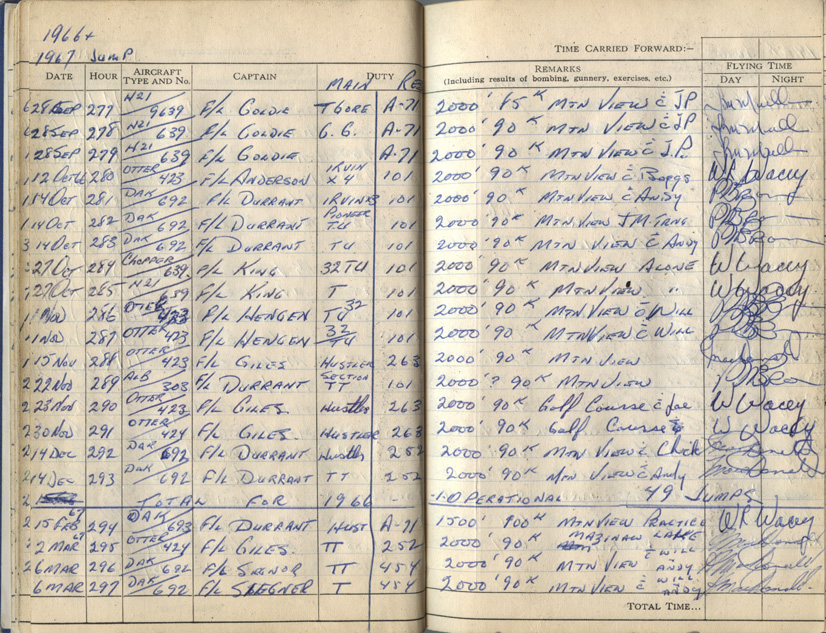 1966+
1967 Jump
TIME CARRIED FORWARD:-
DATE HOUR AIRCRAFT TYPE AND No. CAPTAIN MAIN DUTY RE REMARKS (Including results of bombing, gunnery, exercises, etc.) FLYING TIME DAY NIGHT
28 SEP 277 H21 9639 F/L GOLDIE T GORE A-71 2000' 85K MTN VIEW & JP
28 SEP 278 H21 639 F/L GOLDIE G. G. A-71 2000' 90K MTN VIEW & JP
28 SEP 279 H21 639 F/L GOLDIE A-71 2000' 90K MTN VIEW & J.P.
12 Oct 280 OTTER 423 F/L ANDERSON IRVIN X 4 101 2000' 90K MTN VIEW & Boggs W Wacey
14 Oct 281 DAK 692 F/L DURRANT IRVIN 101 2000' 90K MTN VIEW & ANDY
14 Oct 282 DAK 692 F/L DURRANT PIONEER TU 101 2000' 90K MTN VIEW
14 Oct 283 DAK 692 F/L DURRANT TU 101 2000' 90K MTN VIEW & ANDY
27 Oct 284 CHOPPER 639 F/L KING 32 TU 101 2000' 90K MTN VIEW ALONE W Wacey
27 Oct 285 H21 F/L KING T 101 2000' 90K MTN VIEW " W Wacey
1 Nov 286 OTTER 423 F/L HENGEN 32 TU 101 2000' 90K MTN VIEW & WILL
1 Nov 287 OTTER 423 F/L HENGEN 32 TU 101 2000' 90K MTN VIEW & WILL
15 Nov 288 OTTER 423 F/L GILES HUSTLER 263 2000' 90K MTN VIEW
22 Nov 289 ALB 303 F/L DURRANT SECTION TT 101 2000' ? 90K MTN VIEW
23 Nov 290 OTTER 423 F/L GILES. Hustler 263 2000' 90K Golf Course & Joe W Wacey
30 Nov 291 OTTER 424 F/L GILES. HUSTLER 263 2000' 90K Golf Course W Wacey
14 Dec 292 DAK 692 F/L DURRANT Hustler 252 2000' 90K MTN VIEW & Chick
14 Dec 293 DAK 692 F/L DURRANT TT 252 2000' 90K MTN VIEW & Andy
TOTAL FOR 1966 -1 OPERATIONAL 49 JUMPS
15 FEB 67 294 DAK 693 F/L DURRANT HUST A-71 1500' 100K MTN VIEW PRACTICE W Wacey
2 MAR 67 295 OTTER 424 F/L GILES. TT 252 2000' 90K MAZINAW LAKE
6 MAR 296 DAK 692 F/L TT 454 2000' 90K MTN VIEW & WILL ANDY
6 MAR 297 DAK 692 F/L T 454 2000' 90K MTN VIEW & WILL ANDY
TOTAL TIME...